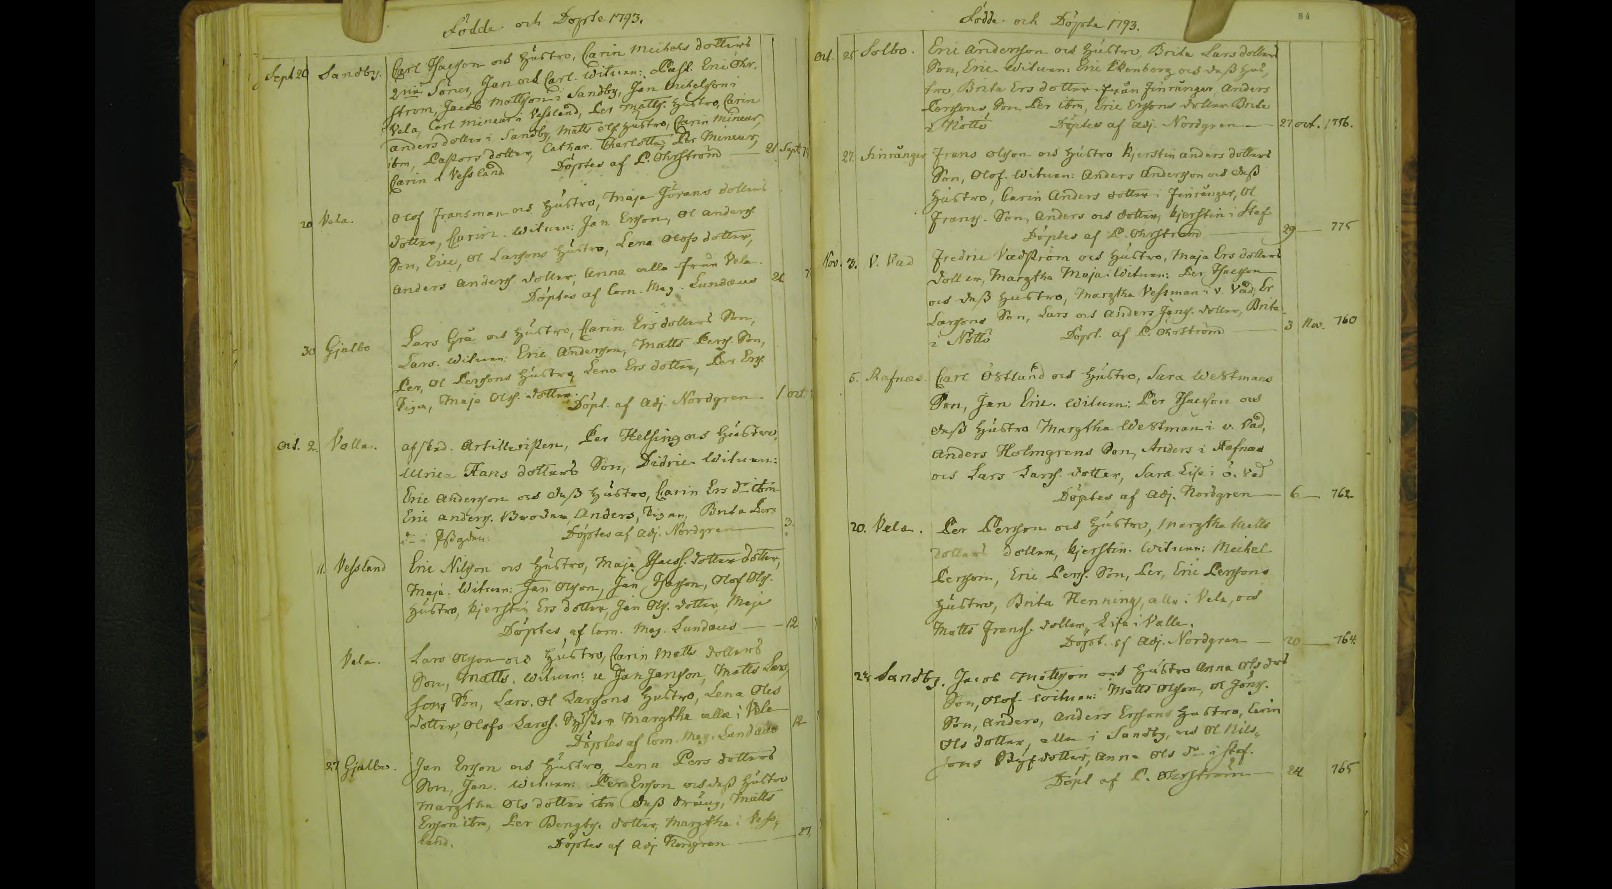 Födde och Döpte 1793.
Sept 20 Sandby. Carl Isacson och Hustro, Carin Michels dotters
Söner, Jan och Carl. Witnen: Past. Eric Öhr,
ström, Jacob Mattsson i Sandby, Jan Michelson i
Vela, Carl Mineur i Vessland, Per Matts. Hustro, Carin
Anders dotter i Sandby, Matts Ols Hustro, Carin Mineur,
ibm, Pastors dotter, Cathar. Charlotta, Per Mineur,
Carin i Vessland Döptes af P. Öhrström 21 Sept
20 Vela. Olof Fransman och Hustro, Maja Görans dotters
dotter, Carin. Witnen: Jan Erson, Ol Anders
Son, Eric, Ol Larsons Hustro, Lena Olofs dotter,
Anders Anders dotter, Anna alla från Vela.
Döptes af Com. Mag. Lundæus
30 Gjälbo Lars Grå och Hustro, Carin Ers dotters Son,
Lars. Witnen: Eric Anderson, Matts Pers. Son,
Per, Ol Persons Hustro, Lena Ers dotter, Per Ers.
Piga, Maja Ols. dotter. Döpt. af Adj. Nordgren 1 oct.
Oct. 2. Valla. afsked. Artilleristen, Per Helsing och Hustro,
Ulrica Hans dotters Son, Didric Witnen:
Eric Anderson och dess Hustro, Carin Ers dr ibm
Eric Anders. Broder, Anders, Pigan, Brita Pers
Döptes af Adj. Nordgren 3.
11. Vessland Eric Nilson och Hustro, Maja Isacs. dotters dotter,
Maja. Witnen: Jan Olson, Jan Isacson, Olof Ols.
Hustro, Kjerstin Ers dotter, Jan Ols. dotter, Maja
Döptes af Com. Mag. Lundæus 12
Vela. Lars Olson och Hustro, Carin Matts dotters
Son, Matts. Witnen: Jan Janson, Matts Lars,
sons Son, Lars. Ol Larsons Hustro, Lena Ols
dotter, Olofs Lars. Syster Margtha alla i Vela
Döptes af Com. Mag. Lundæus 12
27 Gjälbo. Jan Erson och Hustro, Lena Pers dotters
Son, Jan. Witnen: Per Erson och dess Hustro
Margtha Ols dotter ibm dess dräng, Matts
Erson ibm, Per Bengts. dotter, Margtha i Vess,
land. Döptes af Adj Nordgren 27.
Födde och Döpte 1793.
84
Oct. 25 Solbo. Eric Anderson och Hustro, Brita Lars dotters
Son, Eric Witnen: Eric Ekenberg och dess Hus,
tro, Brita Ers dotter från Finrånger, Anders
Persons Son Per ibm, Eric Ersons dotter Brita
i Nöttö Döptes af Adj. Nordgren 27 oct. 756.
27. Finrånger Frans Olson och Hustro Kjerstin Anders dotters
Son, Olof. Witnen: Anders Anderson och dess
Hustro, Carin Anders dotter i Finrånger, Ol
Frans. Son, Anders och dotter, Kjerstin i Staf
Döptes af P. Öhrström 29 775
Nov. 3. V. Vad Fredric Vadström och Hustro, Maja Ers dotters
dotter, Margtha Maja. Witnen: Per Isacson
och dess Hustro, Margtha Vessman i v. Vad, Er
Larsons Son, Lars och Anders Jans. dotter, Brita
i Nöttö Döpt. af P. Öhrström 3 Nov. 760
5. Rafnæs. Carl Östlund och Hustro, Sara Westmans
Son, Jan Eric. Witnen: Per Isacson och
dess Hustro Margtha Westman i v. Vad,
Anders Holmgrens Son, Anders i Rafnæs
och Lars Lars. dotter, Sara Lisa i ö. Vad
Döptes af Adj. Nordgren 6 762
20. Vela. Per Person och Hustro, Margtha Matts
dotters dotter, Kjerstin. Witnen: Michel
Person, Eric Pers. Son, Per, Eric Persons
Hustro, Brita Henning, alla i Vela, och
Matts Frans. dotter, Lisa i Valla.
Döpt. af Adj. Nordgren 20 764
24 Sandby. Jacob Mattson och Hustro Anna Ols drs
Son, Olof. Witnen: Matts Olson, Ol Jans.
Son, Anders, Anders Ersons Hustro, Carin
Ols dotter, alla i Sandby, och Ol Nils,
sons dotter, Anna Ols dr i Staf.
Döpt af P. Öhrström 24 765